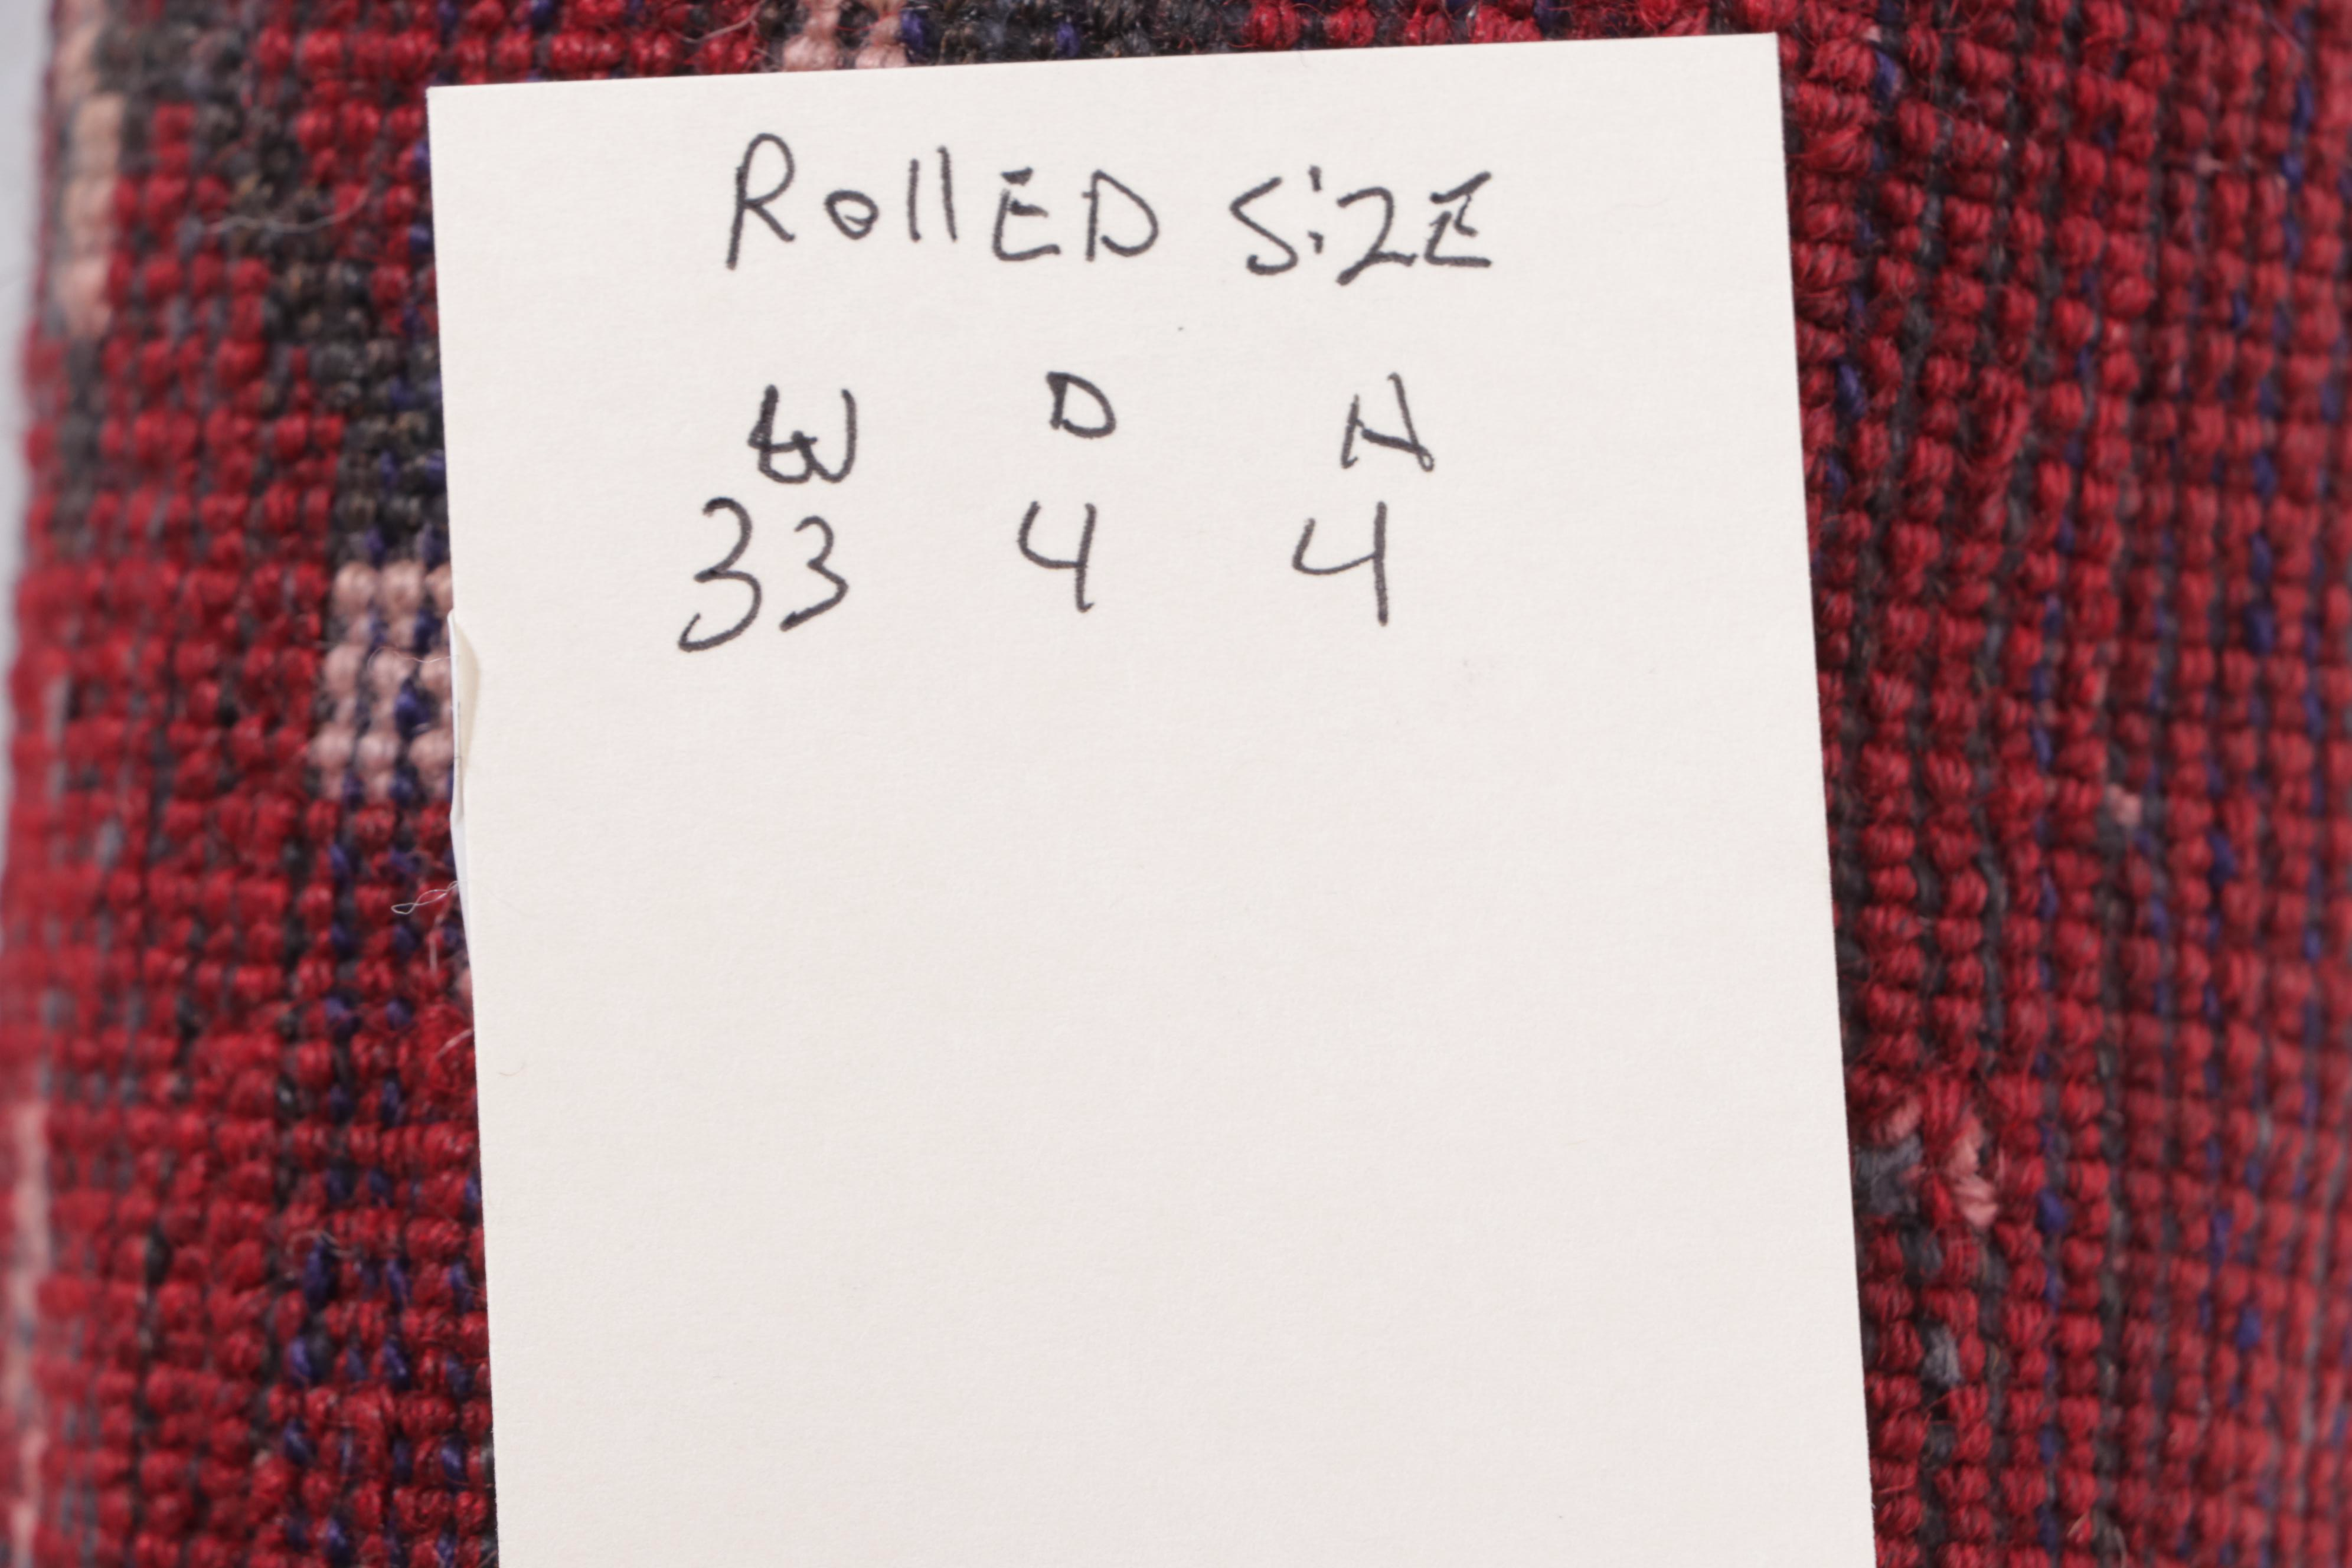 RollED SiZE
W D H
33 4 4